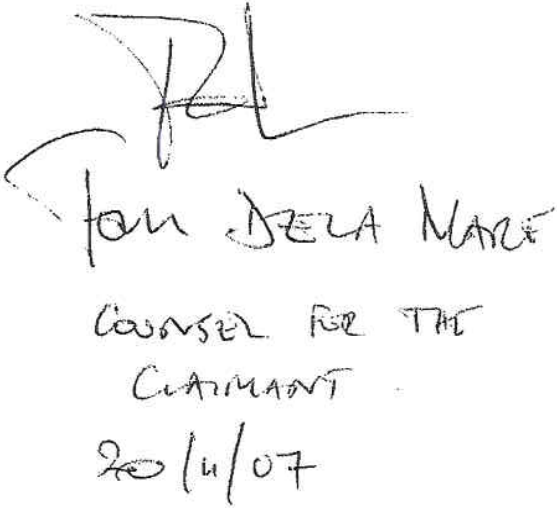 Tom DE LA MARE
COUNSEL FOR THE
CLAIMANT.
20/4/07